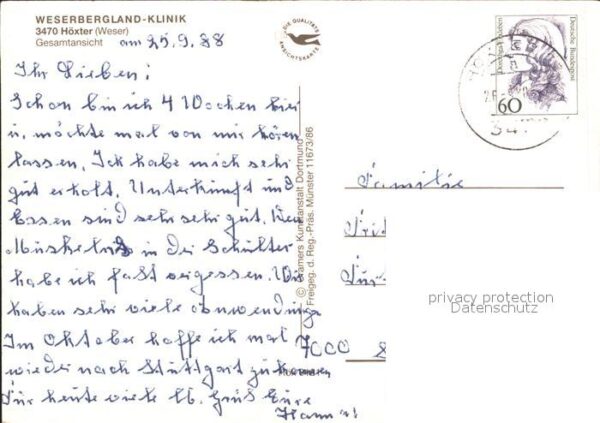 WESERBERGLAND-KLINIK
3470 Höxter (Weser)
Gesamtansicht am 25.9.88
DIE QUALITÄTS
ANSICHTSKARTE
Ihr Lieben!
Schon bin ich 4 Wochen hier
u. möchte mal von mir hören
lassen. Ich habe mich sehr
gut erholt. Unterkunft und
Essen sind sehr sehr gut. Den
Muskelriß in der Schulter
habe ich fast vergessen. Wir
haben sehr viele
Im Oktober hoffe ich mal
wieder nach Stuttgart zu kommen
Für heute viele lb. Grüße Eure
Hanna
© Cramers Kunstanstalt Dortmund
Freigeg. d. Reg.-Präs. Münster 11673/86
Deutsche Bundespost
60
Familie
7000
privacy protection
Datenschutz